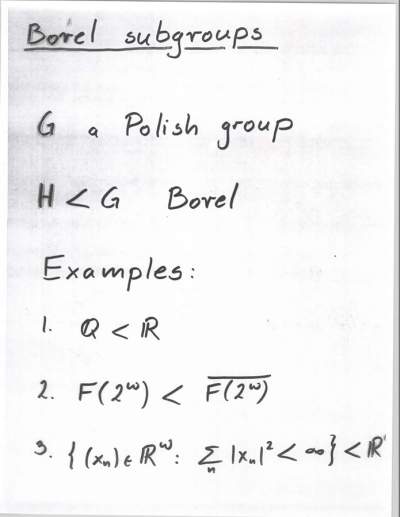 Borel subgroups
G a Polish group
H < G Borel
Examples:
1. ℚ < ℝ
2. F(2^ω) < \overline{F(2^ω)}
3. {(xₙ) ∈ ℝ^ω : ∑ₙ |xₙ|² < ∞} < ℝ